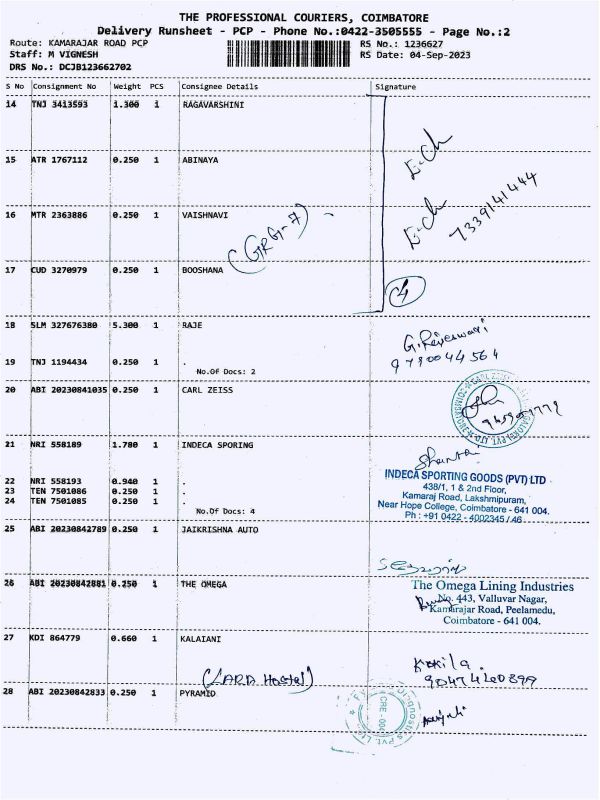 THE PROFESSIONAL COURIERS, COIMBATORE
Delivery Runsheet - PCP - Phone No.:0422-3505555 - Page No.:2
Route: KAMARAJAR ROAD PCP RS No.: 1236627
Staff: M VIGNESH RS Date: 04-Sep-2023
DRS No.: DCJB123662702
S No Consignment No Weight PCS Consignee Details Signature
14 TNJ 3413593 1.300 1 RAGAVARSHINI
15 ATR 1767112 0.250 1 ABINAYA
7339141444
16 MTR 2363886 0.250 1 VAISHNAVI
(GRG-7)
17 CUD 3270979 0.250 1 BOOSHANA
4
18 SLM 327676380 5.300 1 RAJE
G. Rajeswari
9790044564
19 TNJ 1194434 0.250 1 .
No.Of Docs: 2
20 ABI 20230841035 0.250 1 CARL ZEISS
21 NRI 558189 1.780 1 INDECA SPORING
INDECA SPORTING GOODS (PVT) LTD
438/1, 1 & 2nd Floor,
22 NRI 558193 0.940 1 .
Kamaraj Road, Lakshmipuram,
23 TEN 7501086 0.250 1 .
24 TEN 7501085 0.250 1 .
Near Hope College, Coimbatore - 641 004.
No.Of Docs: 4
Ph : +91 0422 - 4002345 / 46
25 ABI 20230842789 0.250 1 JAIKRISHNA AUTO
26 ABI 20230842881 0.250 1 THE OMEGA
The Omega Lining Industries
No. 443, Valluvar Nagar,
Kamarajar Road, Peelamedu,
Coimbatore - 641 004.
27 KDI 864779 0.660 1 KALAIANI
Kokila.
9047460899
(LARA Hostel)
28 ABI 20230842833 0.250 1 PYRAMID